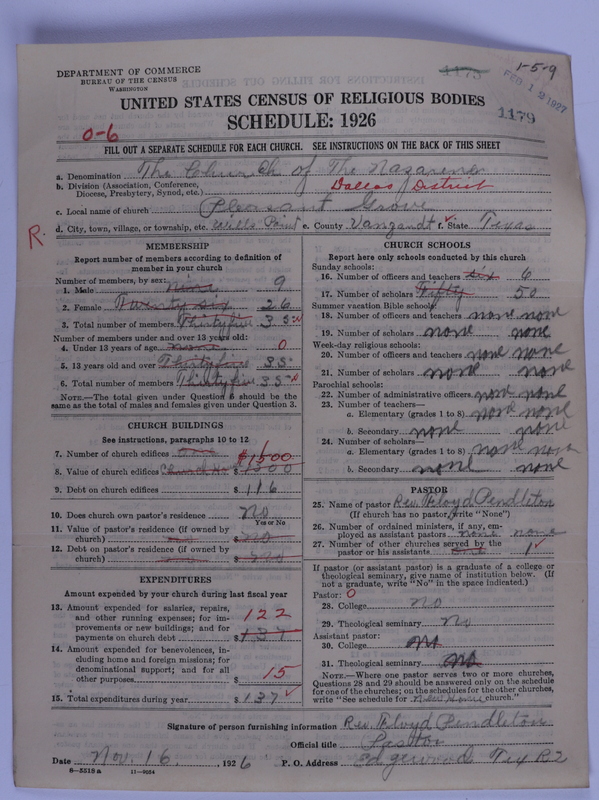 DEPARTMENT OF COMMERCE
BUREAU OF THE CENSUS
WASHINGTON
1175
1-5-9
FEB 12 1927
1179
UNITED STATES CENSUS OF RELIGIOUS BODIES
SCHEDULE: 1926
0-6
FILL OUT A SEPARATE SCHEDULE FOR EACH CHURCH. SEE INSTRUCTIONS ON THE BACK OF THIS SHEET
a. Denomination The Church of The Nazarene
b. Division (Association, Conference, Diocese, Presbytery, Synod, etc.) Dallas District
c. Local name of church Pleasant Grove
d. City, town, village, or township, etc. Wills Point e. County Vanzandt f. State Texas
R.
MEMBERSHIP
Report number of members according to definition of member in your church
Number of members, by sex:
1. Male nine 9
2. Female Twenty six 26
3. Total number of members Thirtyfive 35
Number of members under and over 13 years old:
4. Under 13 years of age none 0
5. 13 years old and over Thirtyfive 35
6. Total number of members Thirtyfive 35
NOTE.—The total given under Question 6 should be the same as the total of males and females given under Question 3.
CHURCH BUILDINGS
See instructions, paragraphs 10 to 12
7. Number of church edifices one 1
8. Value of church edifices $1500 $ 1500
9. Debt on church edifices $ 116
10. Does church own pastor's residence no
Yes or No
11. Value of pastor's residence (if owned by church) no $ no
12. Debt on pastor's residence (if owned by church) no $ no
EXPENDITURES
Amount expended by your church during last fiscal year
13. Amount expended for salaries, repairs, and other running expenses; for improvements or new buildings; and for payments on church debt 122 $ 137
14. Amount expended for benevolences, including home and foreign missions; for denominational support; and for all other purposes $ 15
15. Total expenditures during year $ 137
CHURCH SCHOOLS
Report here only schools conducted by this church
Sunday schools:
16. Number of officers and teachers six 6
17. Number of scholars Fifty 50
Summer vacation Bible schools:
18. Number of officers and teachers none none
19. Number of scholars none none
Week-day religious schools:
20. Number of officers and teachers none none
21. Number of scholars none none
Parochial schools:
22. Number of administrative officers none none
23. Number of teachers—
a. Elementary (grades 1 to 8) none none
b. Secondary none none
24. Number of scholars—
a. Elementary (grades 1 to 8) none none
b. Secondary none none
PASTOR
25. Name of pastor Rev. Floyd Pendleton
(If church has no pastor, write "None")
26. Number of ordained ministers, if any, employed as assistant pastors none none
27. Number of other churches served by the pastor or his assistants one 1
If pastor (or assistant pastor) is a graduate of a college or theological seminary, give name of institution below. (If not a graduate, write "No" in the space indicated.)
Pastor: 0
28. College no
29. Theological seminary No
Assistant pastor:
30. College no
31. Theological seminary no
NOTE.—Where one pastor serves two or more churches, Questions 28 and 29 should be answered only on the schedule for one of the churches; on the schedules for the other churches, write "See schedule for New Home church."
Signature of person furnishing information Rev. Floyd Pendleton
Official title Pastor
Date Nov. 16, 1926 P. O. Address Edgewood Tex R2
8—5518a 11—9054